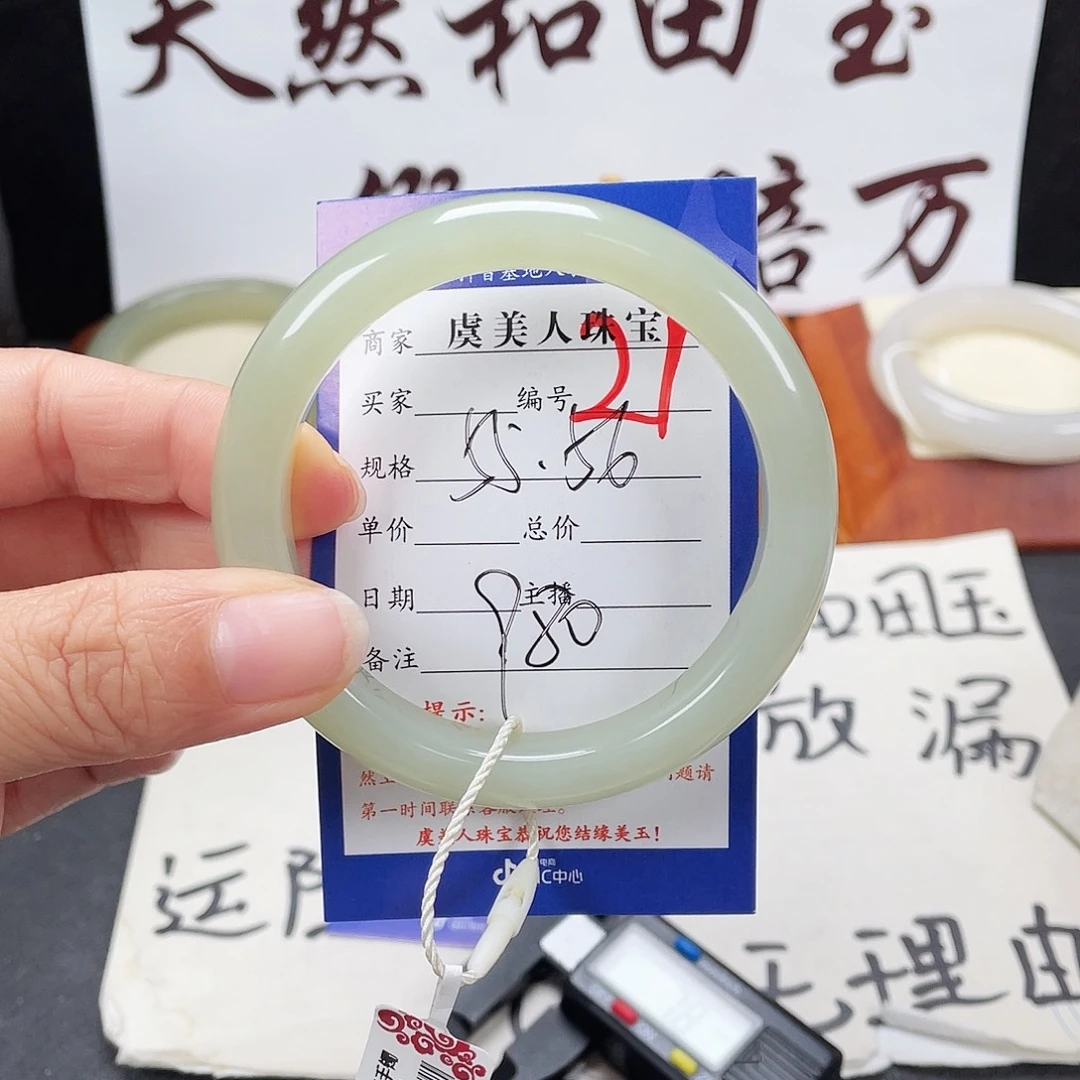 天然和田玉
倍万
虞美人珠宝
商家
买家 编号 21
规格 55.56
单价 总价
日期 主播
980
备注
提示:
题请
第一时间联
虞美人珠宝恭祝您结缘美玉!
电商
C中心
和田玉
放漏
运
无理由
手镯